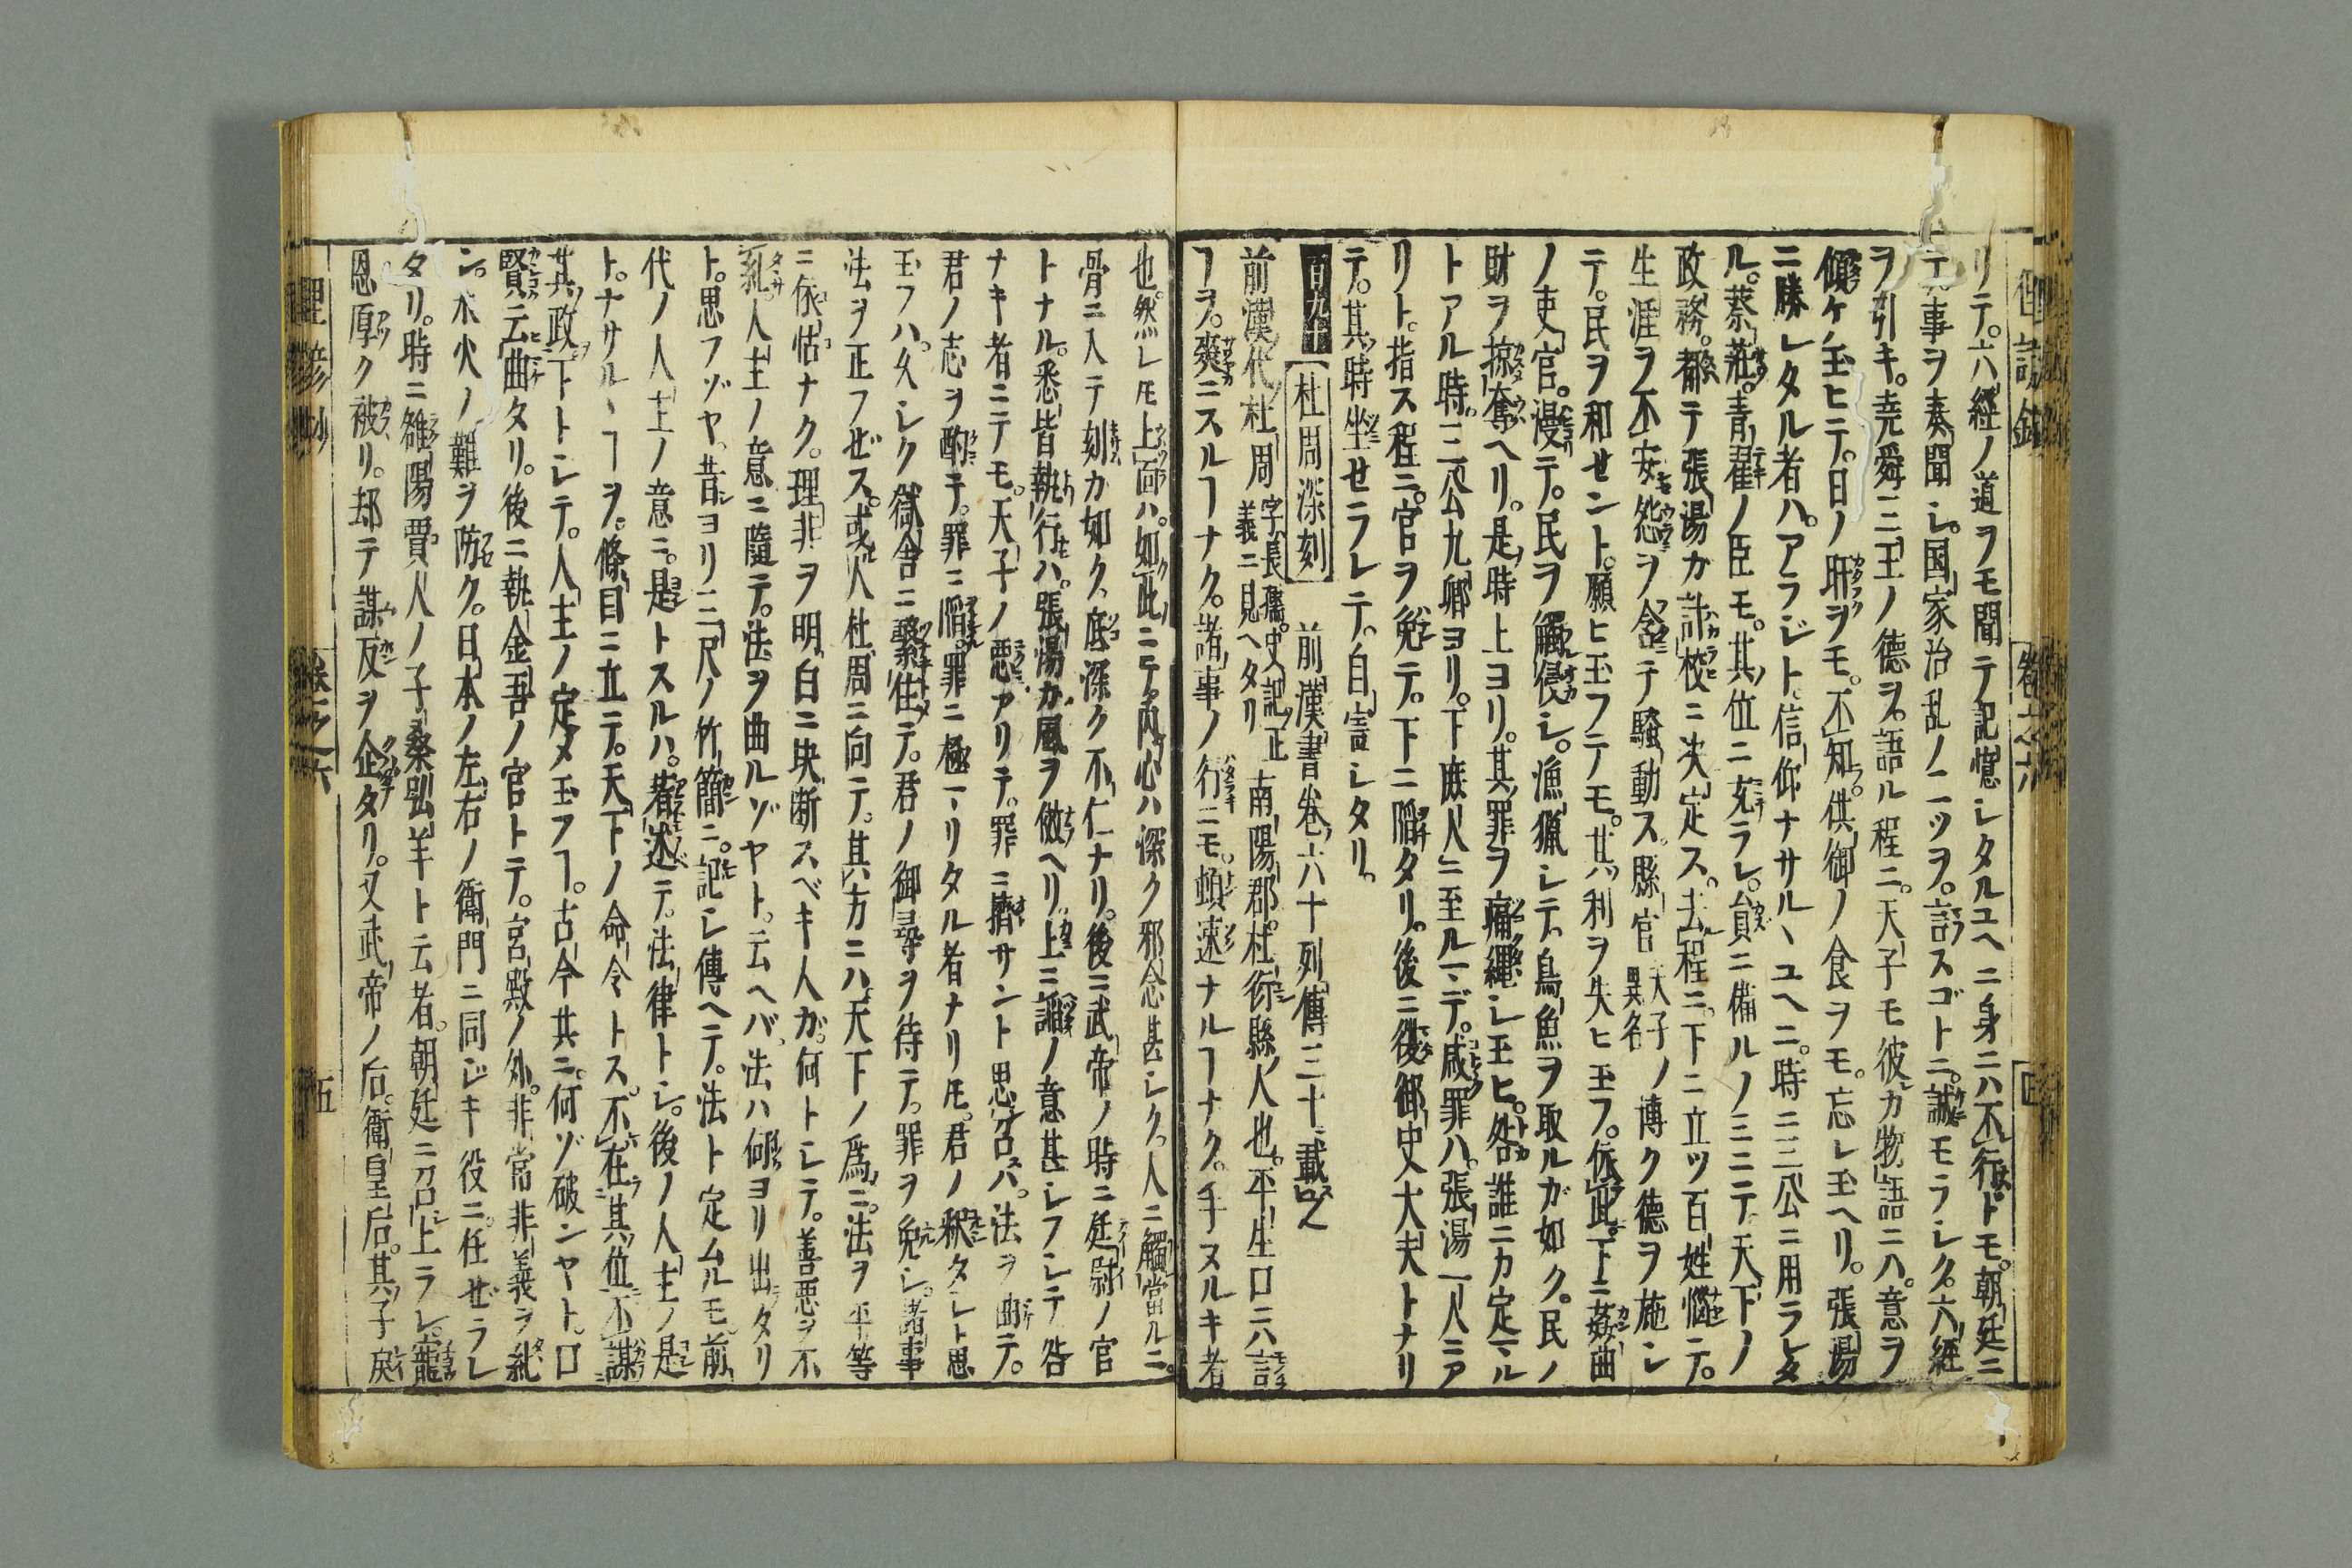 リテ。六經ノ道ヲモ聞テ記憶シタルユヘニ身ニハ不行トモ。朝廷ニ
テ事ヲ奏聞シ。国家治乱ノ二ッヲ。言スゴトニ。誠モラシク。六經
ヲ引キ。尭舜三王ノ德ヲ。語ル程ニ。天子モ彼カ物語ニハ。意ヲ
傾ケ玉ヒテ。日ノ旰ヲモ。不知。供御ノ食ヲモ。忘レ玉ヘリ。張湯
ニ勝レタル者ハ。アラジト。信仰ナサルヽユヘニ。時ニ三公ニ用ラレタ
ル。蔡莊。青翟ノ臣モ。其位ニ充ラレ。員ニ備ルノミニテ。天下ノ
政務。都テ張湯カ計校ニ決定ス。去程ニ。下ニ立ツ百姓惱ニテ。
生涯ヲ不安。怨ヲ含テ騷動ス。縣官天子ノ異名ノ博ク德ヲ施シ
テ。民ヲ和セント。願ヒ玉フテモ。其利ヲ失ヒ玉フ。依此。下ニ姦曲
ノ吏官。漫テ。民ヲ觸侵シ。漁獵シテ。鳥魚ヲ取ルガ如ク。民ノ
財ヲ掠奪ヘリ。是時上ヨリ。其罪ヲ痛繩シ玉ヒ。咎誰ニカ定マル
トアル時。三公九卿ヨリ。下庶人ニ至ルマデ。咸罪ハ。張湯一人ニア
リト。指ス程ニ。官ヲ免テ。下ニ陷タリ。後ニ復御史大夫トナリ
テ。其時坐セラレテ。自害シタリ。
百九十 杜周深刻 前漢書卷六十列傳三十載之
前漢代杜周字長孺。史記正義ニ見ヘタリ南陽郡。杜衍縣人也。平生口ニハ言
フヲ。爽ニスルフナク。諸事ノ行ニモ。頓速ナルフナク。手ヌルキ者
也。然レ𪜈上面ハ。如此ニテ。内心ハ深ク邪念甚シク。人ニ觸當ルニ。
骨ニ入テ刻カ如ク。底深ク不仁ナリ。後ニ武帝ノ時ニ廷尉ノ官
トナル。悉皆執行ハ。張湯カ風ヲ倣ヘリ。上ニ諂ノ意甚シフシテ咎
ナキ者ニテモ。天子ノ惡アリテ。罪ニ擠サント思召ハ。法ヲ曲テ。
君ノ志ヲ酌テ。罪ニ陷。罪ニ極マリタル者ナリ𪜈。君ノ釈タシト思
玉フハ。久シク獄舎ニ繫住テ。君ノ御尋ヲ待テ。罪ヲ免シ。諸事
法ヲ正フゼス。或人杜周ニ向テ。其方ニハ。天下ノ爲ニ。法ヲ平等
ニ依怙ナク。理非ヲ明白ニ决断スベキ人ガ。何トシテ。善悪ヲ不
糺。人主ノ意ニ隨テ。法ヲ曲ルゾヤト。云ヘバ。法ハ何ヨリ出タリ
ト。思フゾヤ。昔ヨリ三尺ノ竹簡ニ。記シ傳ヘテ。法ト定ムルモ。前
代ノ人主ノ意ニ。是トスルハ。著述テ。法律トシ。後ノ人主ノ是
ト。ナサルヽフヲ。條目ニ立テ。天下ノ命令トス。不在其位不謀
其政。下トシテ。人主ノ定メ玉フフ。古今其ニ。何ゾ破ンヤト。口
賢云曲タリ。後ニ執金吾ノ官トテ。宮殿ノ外。非常非義ヲ糺
シ。水火ノ難ヲ防ク。日本ノ左右ノ衛門ニ同ジキ役ニ。任ゼラレ
タリ。時ニ雒陽賈人ノ子。桑弘羊ト云者。朝廷ニ召上ラレ。寵
恩厚ク被リ。却テ謀反ヲ企タリ。又武帝ノ后。衛皇后。其子戾
理諺抄
卷之六
五
卷之六